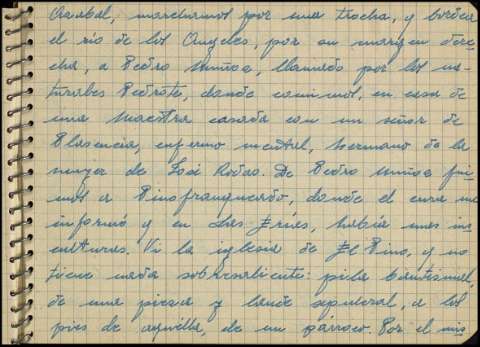 marchamos por una trocha, y bordea
el río de los Angeles, por su margen dere-
cha, a Pedro Muñoz, llamado por los na-
turales Pedrote, donde comimos, en casa de
una maestra casada con un señor de
Plasencia, enfermo mental, hermano de la
mujer de José Rodao. De Pedro Muñoz fui-
mos a Pinofranqueado, donde el cura me
informó y en Las Erías, había unas in
culturas. Vi la iglesia de El Pino, y no
tiene nada sobresaliente: pila bautismal,
de una pieza y laude sepulcral, a los
pies de aquélla, de un párroco. Por el mis